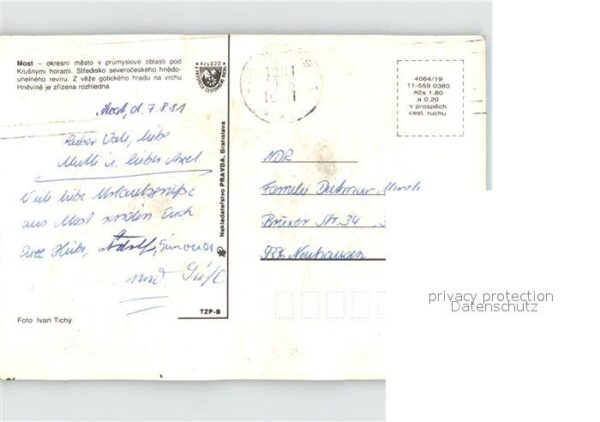 Most – okresní město v průmyslové oblasti pod
Krušnými horami. Středisko severočeského hnědo-
uhelného revíru. Z věže gotického hradu na vrchu
Hněvíně je zřízena rozhledna
Most, d. 7.8.81
Lieber Vati, liebe
Mutti u. lieber Axel
Viele liebe Urlaubsgrüße
aus Most senden Euch
Eure Heike,
und
Foto Ivan Tichý
TZP-B
Nakladateľstvo PRAVDA, Bratislava
Kčs 0,20
4064/19
11-559 0380
Kčs 1.80
a 0.20
v prospěch
cest. ruchu
NDR
Familie
Str. 34
Neuhausen
privacy protection
Datenschutz